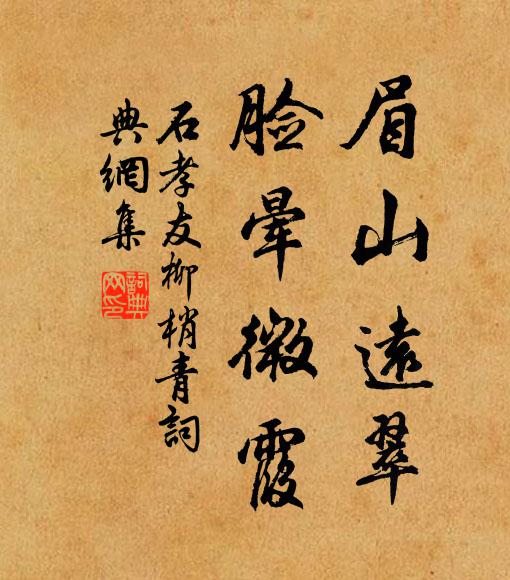 眉山遠翠
臉暈微霞
石孝友柳梢青詞
典網集
詞典
网印